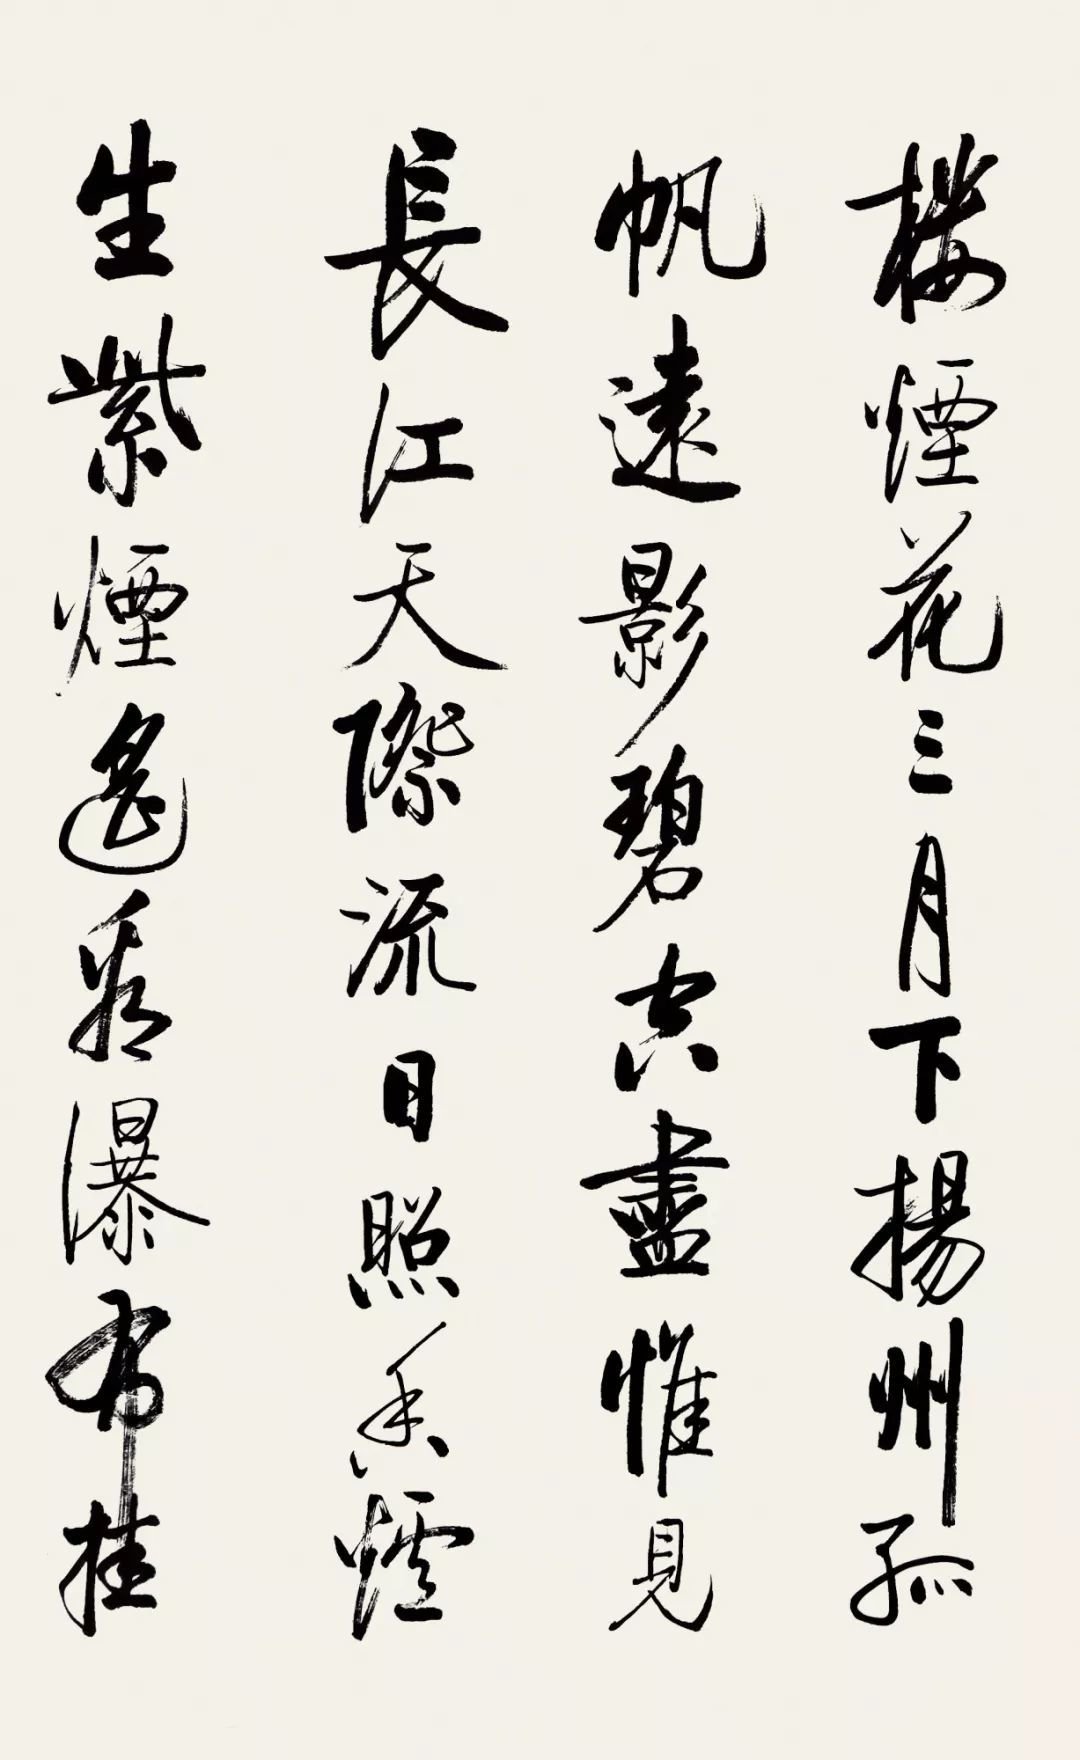 楼煙花三月下揚州孤
帆遠影碧空盡惟見
長江天際流日照香爐
生紫煙遙看瀑布挂